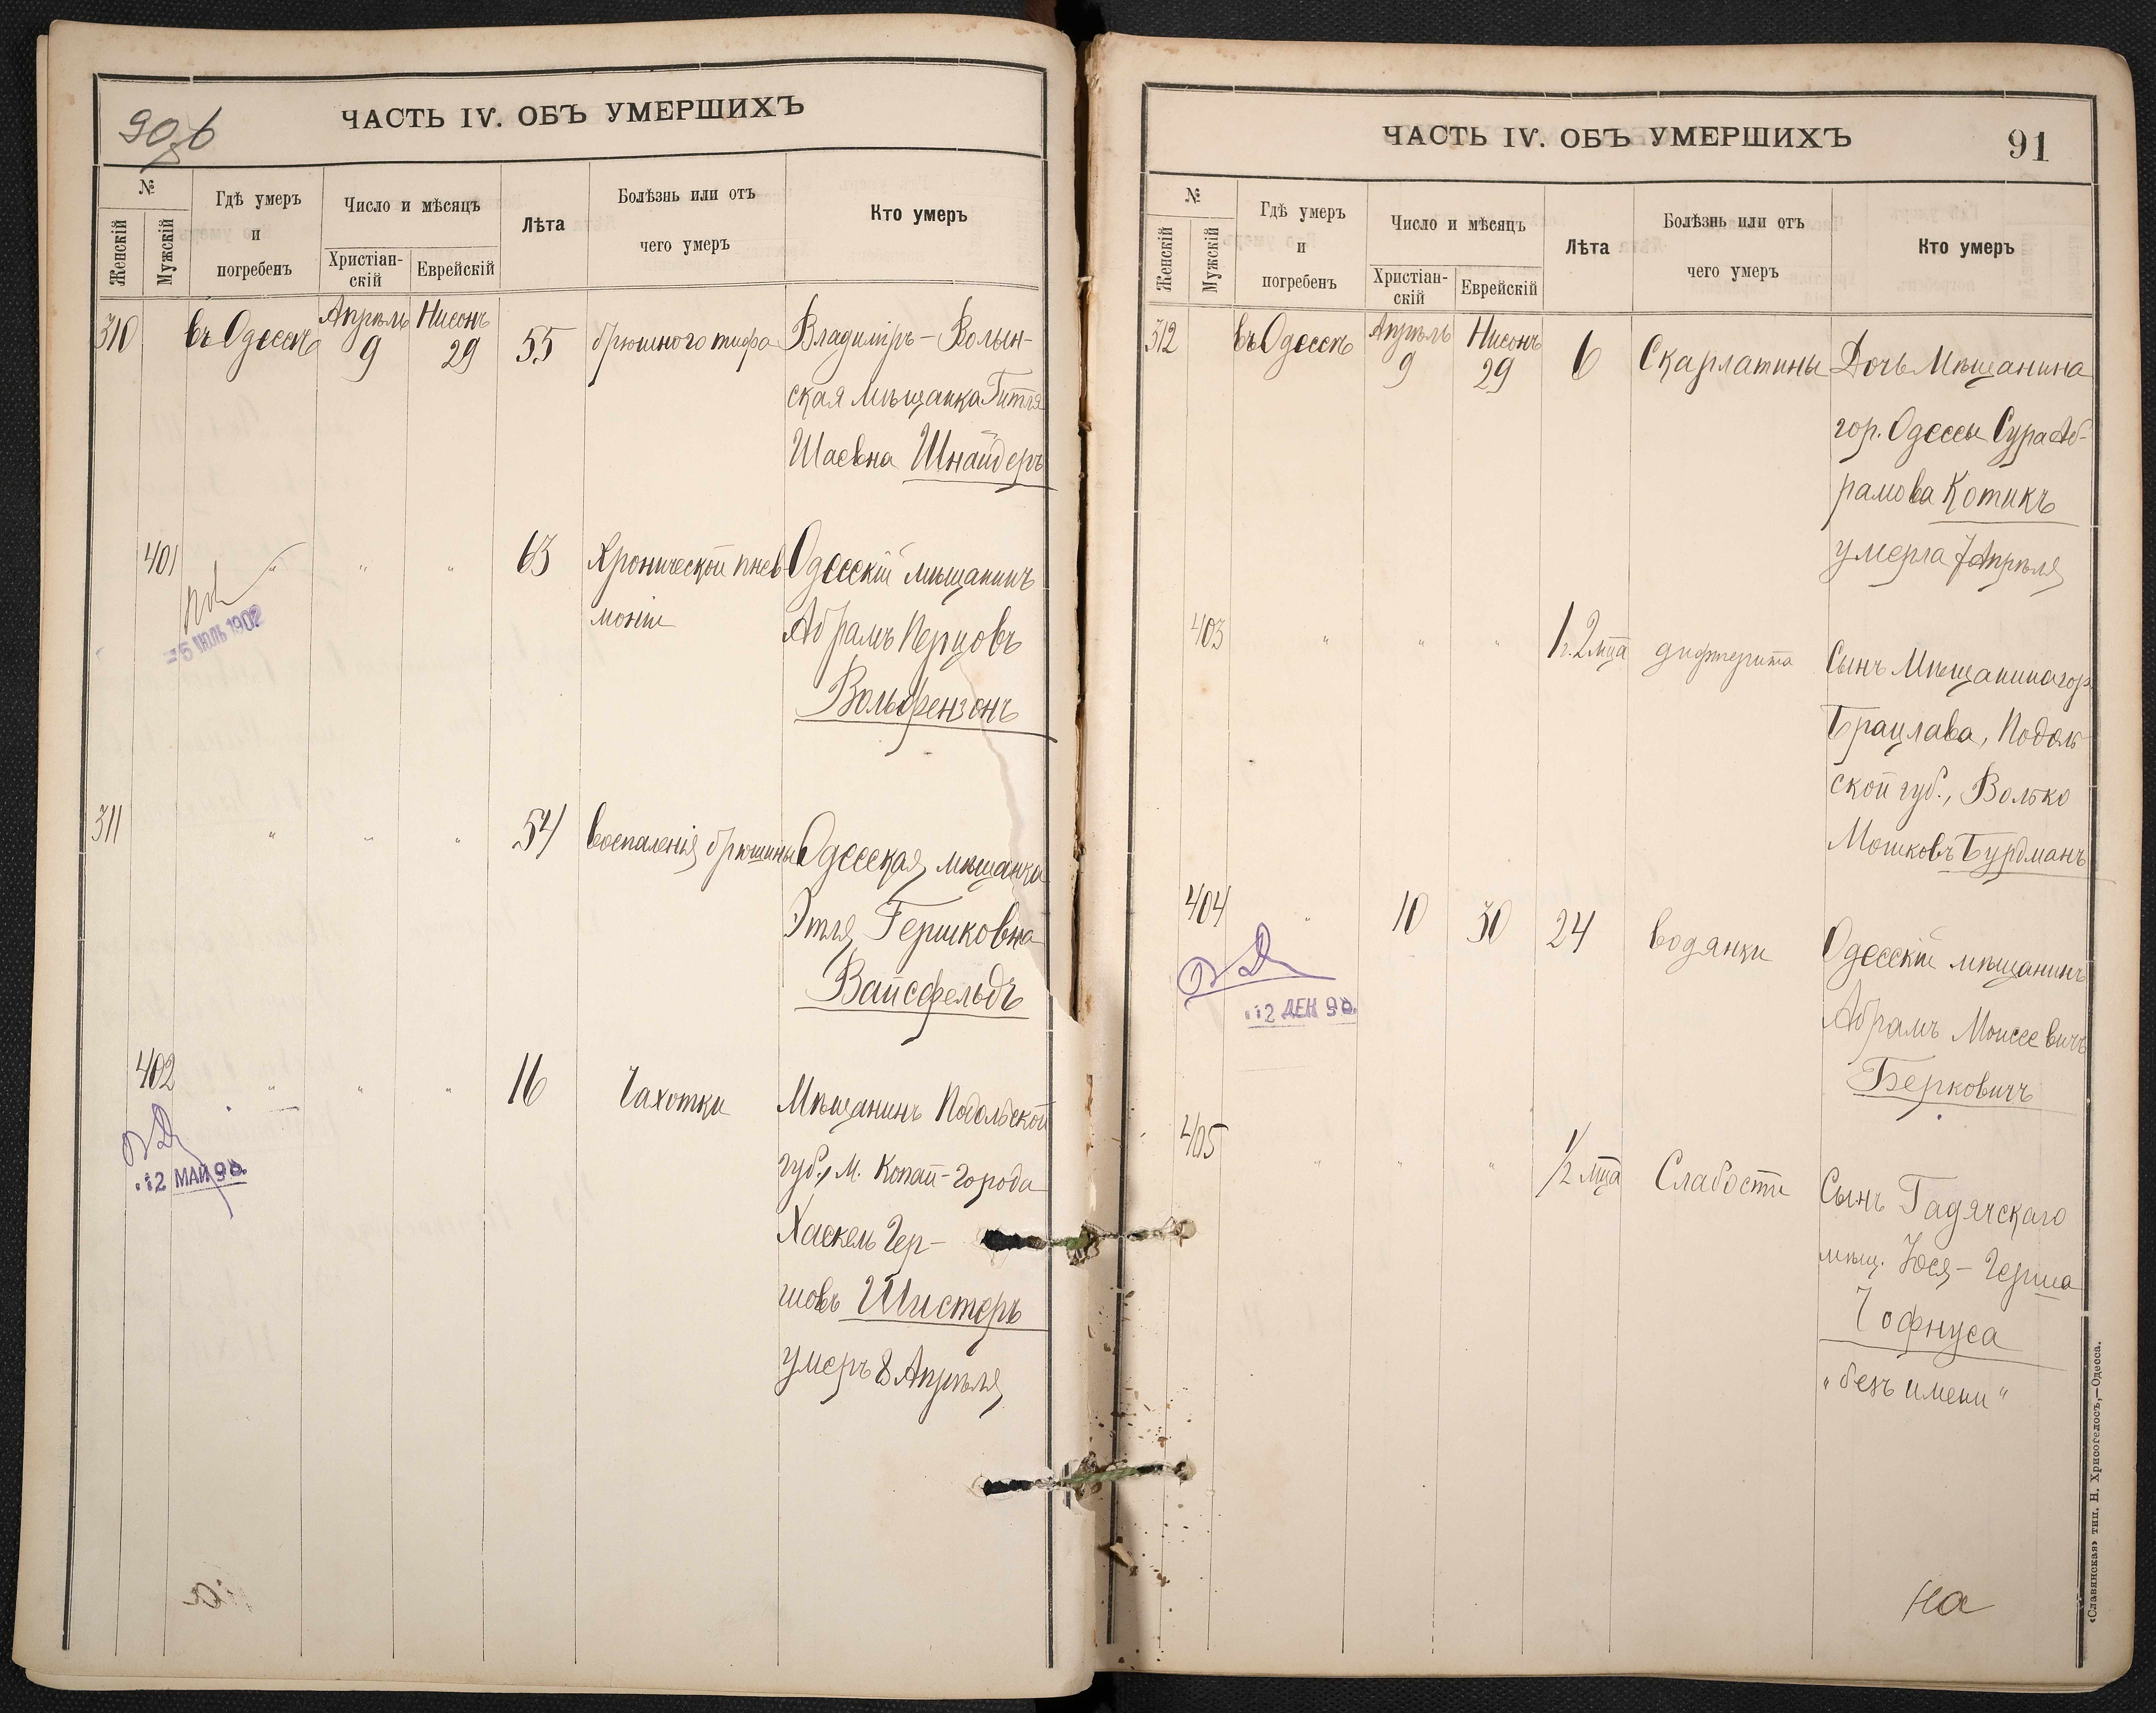 90об
ЧАСТЬ IV. ОБЪ УМЕРШИХЪ
№
Женскій
Мужскій
Гдѣ умеръ
и
погребенъ
Число и мѣсяцъ
Христіан-
скій
Еврейскій
Лѣта
Болѣзнь или отъ
чего умеръ
Кто умеръ
310 въ Одессѣ Апрѣль 9 Нисонъ 29 55 брюшного тифа Владиміръ-Волын-
ская мѣщанка Гитля
Шаевна Шнайдеръ
401 " " " 63 Хронической пнев Одесскій мѣщанинъ
моніи Абрамъ Перцовъ
Вольфензонъ
=5 ИЮЛЬ 1902
311 " " " 54 воспаленія брюшины Одесская мѣщанка
Этля Гершковна
Вайсфельдъ
402 " " " 16 Чахотки Мѣщанинъ Подольской
губ., м. Копай-города
Хаскель Гер-
шовъ Шистеръ
умеръ 8 Апрѣля
12 МАЙ 98.
ЧАСТЬ IV. ОБЪ УМЕРШИХЪ
91
№
Женскій
Мужскій
Гдѣ умеръ
и
погребенъ
Число и мѣсяцъ
Христіан-
скій
Еврейскій
Лѣта
Болѣзнь или отъ
чего умеръ
Кто умеръ
312 въ Одессѣ Апрѣль 9 Нисонъ 29 6 Скарлатины Дочь Мѣщанина
гор. Одессы Сура Аб-
рамова Котикъ
умерла 7 Апрѣля
403 " " " 1 г. 2 мца дифтерита Сынъ Мѣщанина гор.
Брацлава, Подоль-
ской губ., Волько
Мошковъ Бурдманъ
404 " 10 30 24 водянки Одесскій мѣщанинъ
Абрамъ Моисеевичъ
Берковичъ
12 ДЕК 98.
405 " " " 1/2 мца Слабости Сынъ Гадячскаго
мѣщ. Юся-Герша
Гофнуса
"безъ имени"
на
«Славянская» тип. Н. Хрисогелосъ,—Одесса.